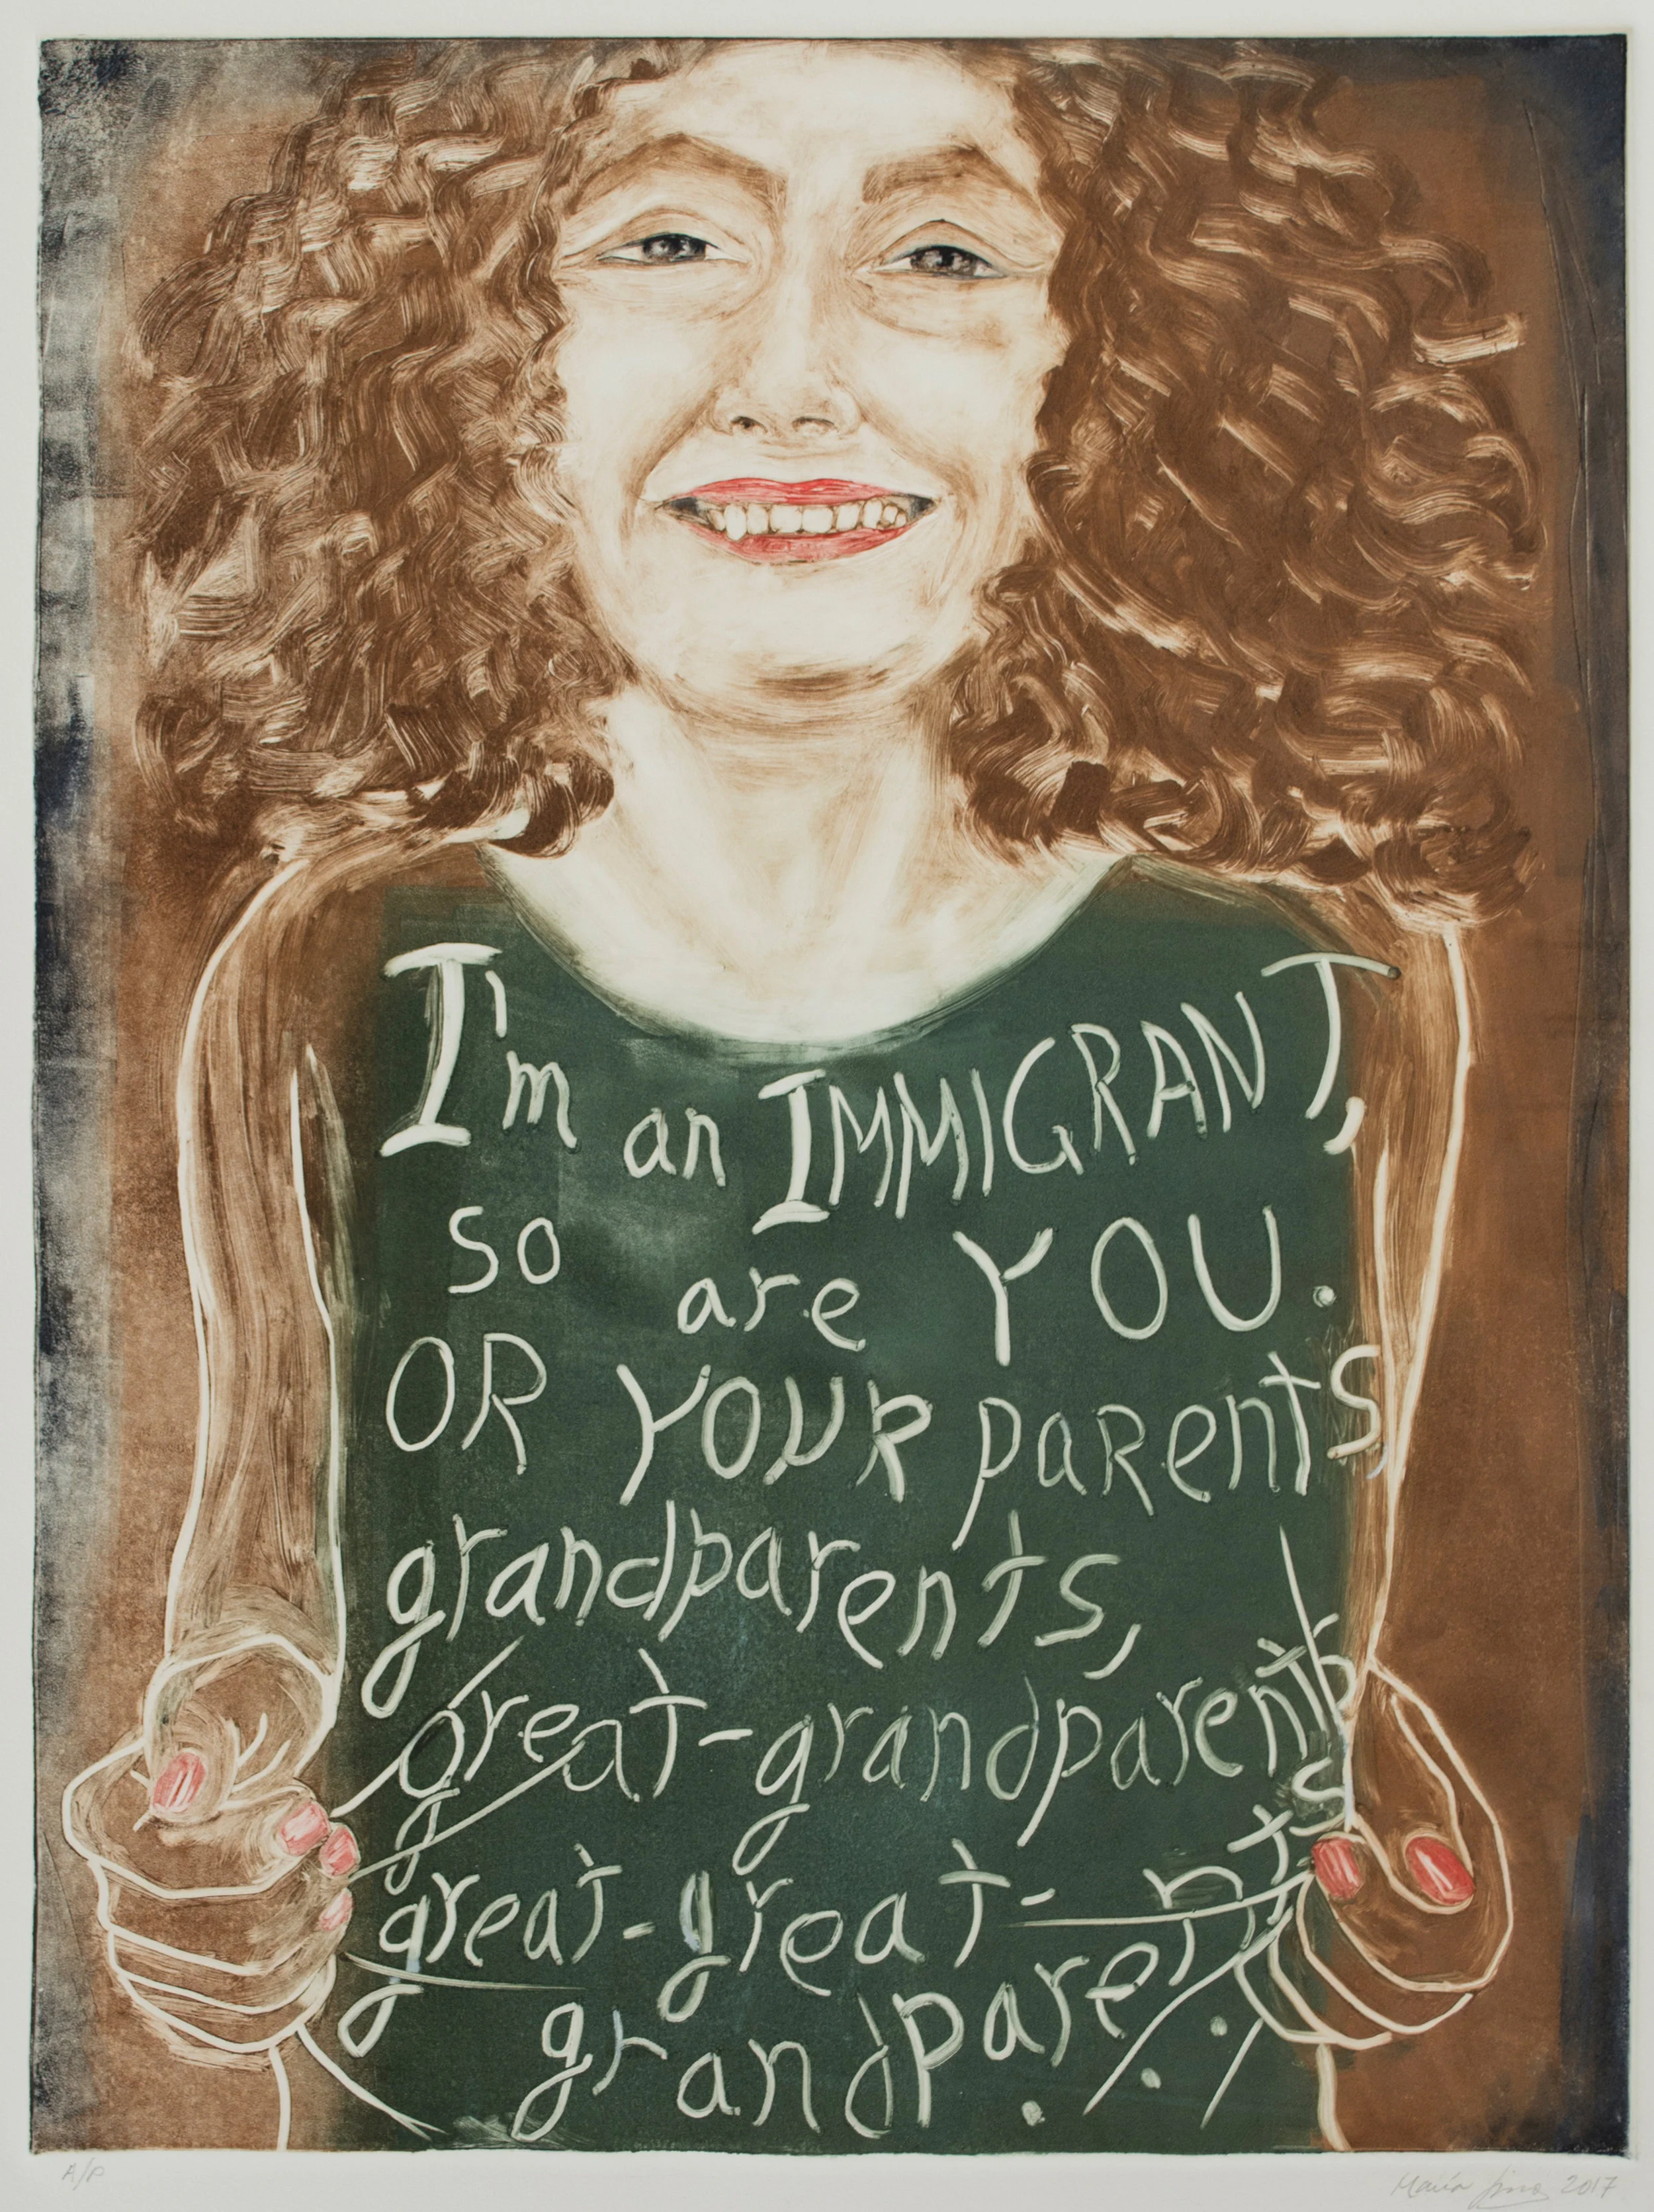 I'm an IMMIGRANT,
so are YOU.
OR YOUR parents,
grandparents,
great-grandparents
great-great-
grandparents...
A/P
María 2017